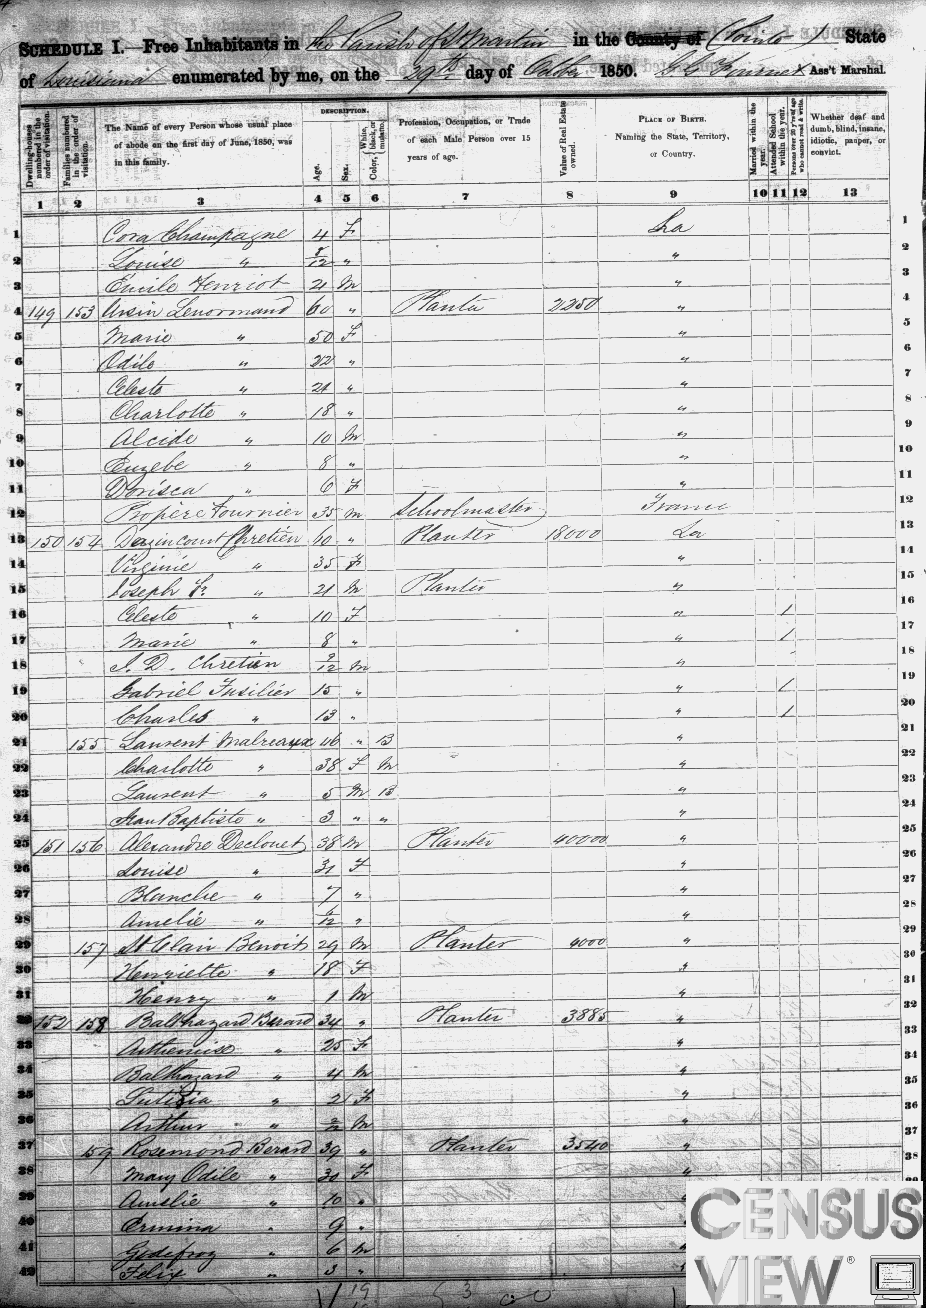 SCHEDULE I.—Free Inhabitants in the Parish of St Martin in the County of State
of Louisiana enumerated by me, on the 29th day of October 1850. Ass't Marshal.
Dwelling-houses numbered in the order of visitation.
Families numbered in the order of visitation.
The Name of every Person whose usual place of abode on the first day of June, 1850, was in this family.
DESCRIPTION.
Age.
Sex.
Color, White, black, or mulatto.
Profession, Occupation, or Trade of each Male Person over 15 years of age.
Value of Real Estate owned.
PLACE OF BIRTH.
Naming the State, Territory, or Country.
Married within the year.
Attended School within the year.
Persons over 20 y'rs of age who cannot read & write.
Whether deaf and dumb, blind, insane, idiotic, pauper, or convict.
1 2 3 4 5 6 7 8 9 10 11 12 13
1 Cora Champagne 4 F La 1
2 Louise " 8/12 " " 2
3 Emile Henriot 21 M " 3
4 149 153 Ursin Lenormand 60 " Planter 2250 " 4
5 Marie " 50 F " 5
6 Odile " 22 " " 6
7 Celeste " 21 " " 7
8 Charlotte " 18 " " 8
9 Alcide " 10 M " 9
10 Euzebe " 8 " " 10
11 Dorisca " 6 F " 11
12 Propère Fournier 35 M Schoolmaster France 12
13 150 154 Dazincourt Chrétien 60 " Planter 18000 La 13
14 Virginie " 35 F " 14
15 Joseph Jr. " 21 M Planter " 15
16 Celeste " 10 F " 1 16
17 Marie " 8 " " 1 17
18 J. D. Chretien 9/12 M " 18
19 Gabriel Fusilier 15 " " 1 19
20 Charles " 13 " " 1 20
21 155 Laurent Malveaux 46 " B " 21
22 Charlotte " 38 F M " 22
23 Laurent " 5 M B " 23
24 Jean Baptiste " 3 " " " 24
25 151 156 Alexandre Declouet 38 M Planter 40000 " 25
26 Louise " 31 F " 26
27 Blanche " 7 " " 27
28 Amelie " /12 " " 28
29 157 St Clair Benoit 29 M Planter 4000 " 29
30 Henriette " 18 F " 30
31 Henry " 1 M " 31
32 152 158 Balthazard Berard 34 " Planter 3885 " 32
33 Arthemise " 25 F " 33
34 Balthazard " 4 M " 34
35 Lutitia " 2 F " 35
36 Arthur " M " 36
37 159 Rosemond Berard 39 " Planter 3540 " 37
38 Mary Odile " 30 F " 38
39 Amelie " 10 "
40 Ormina " 9 "
41 Godefroy " 6 M "
42 Felix " 3 "
CENSUS
VIEW ®